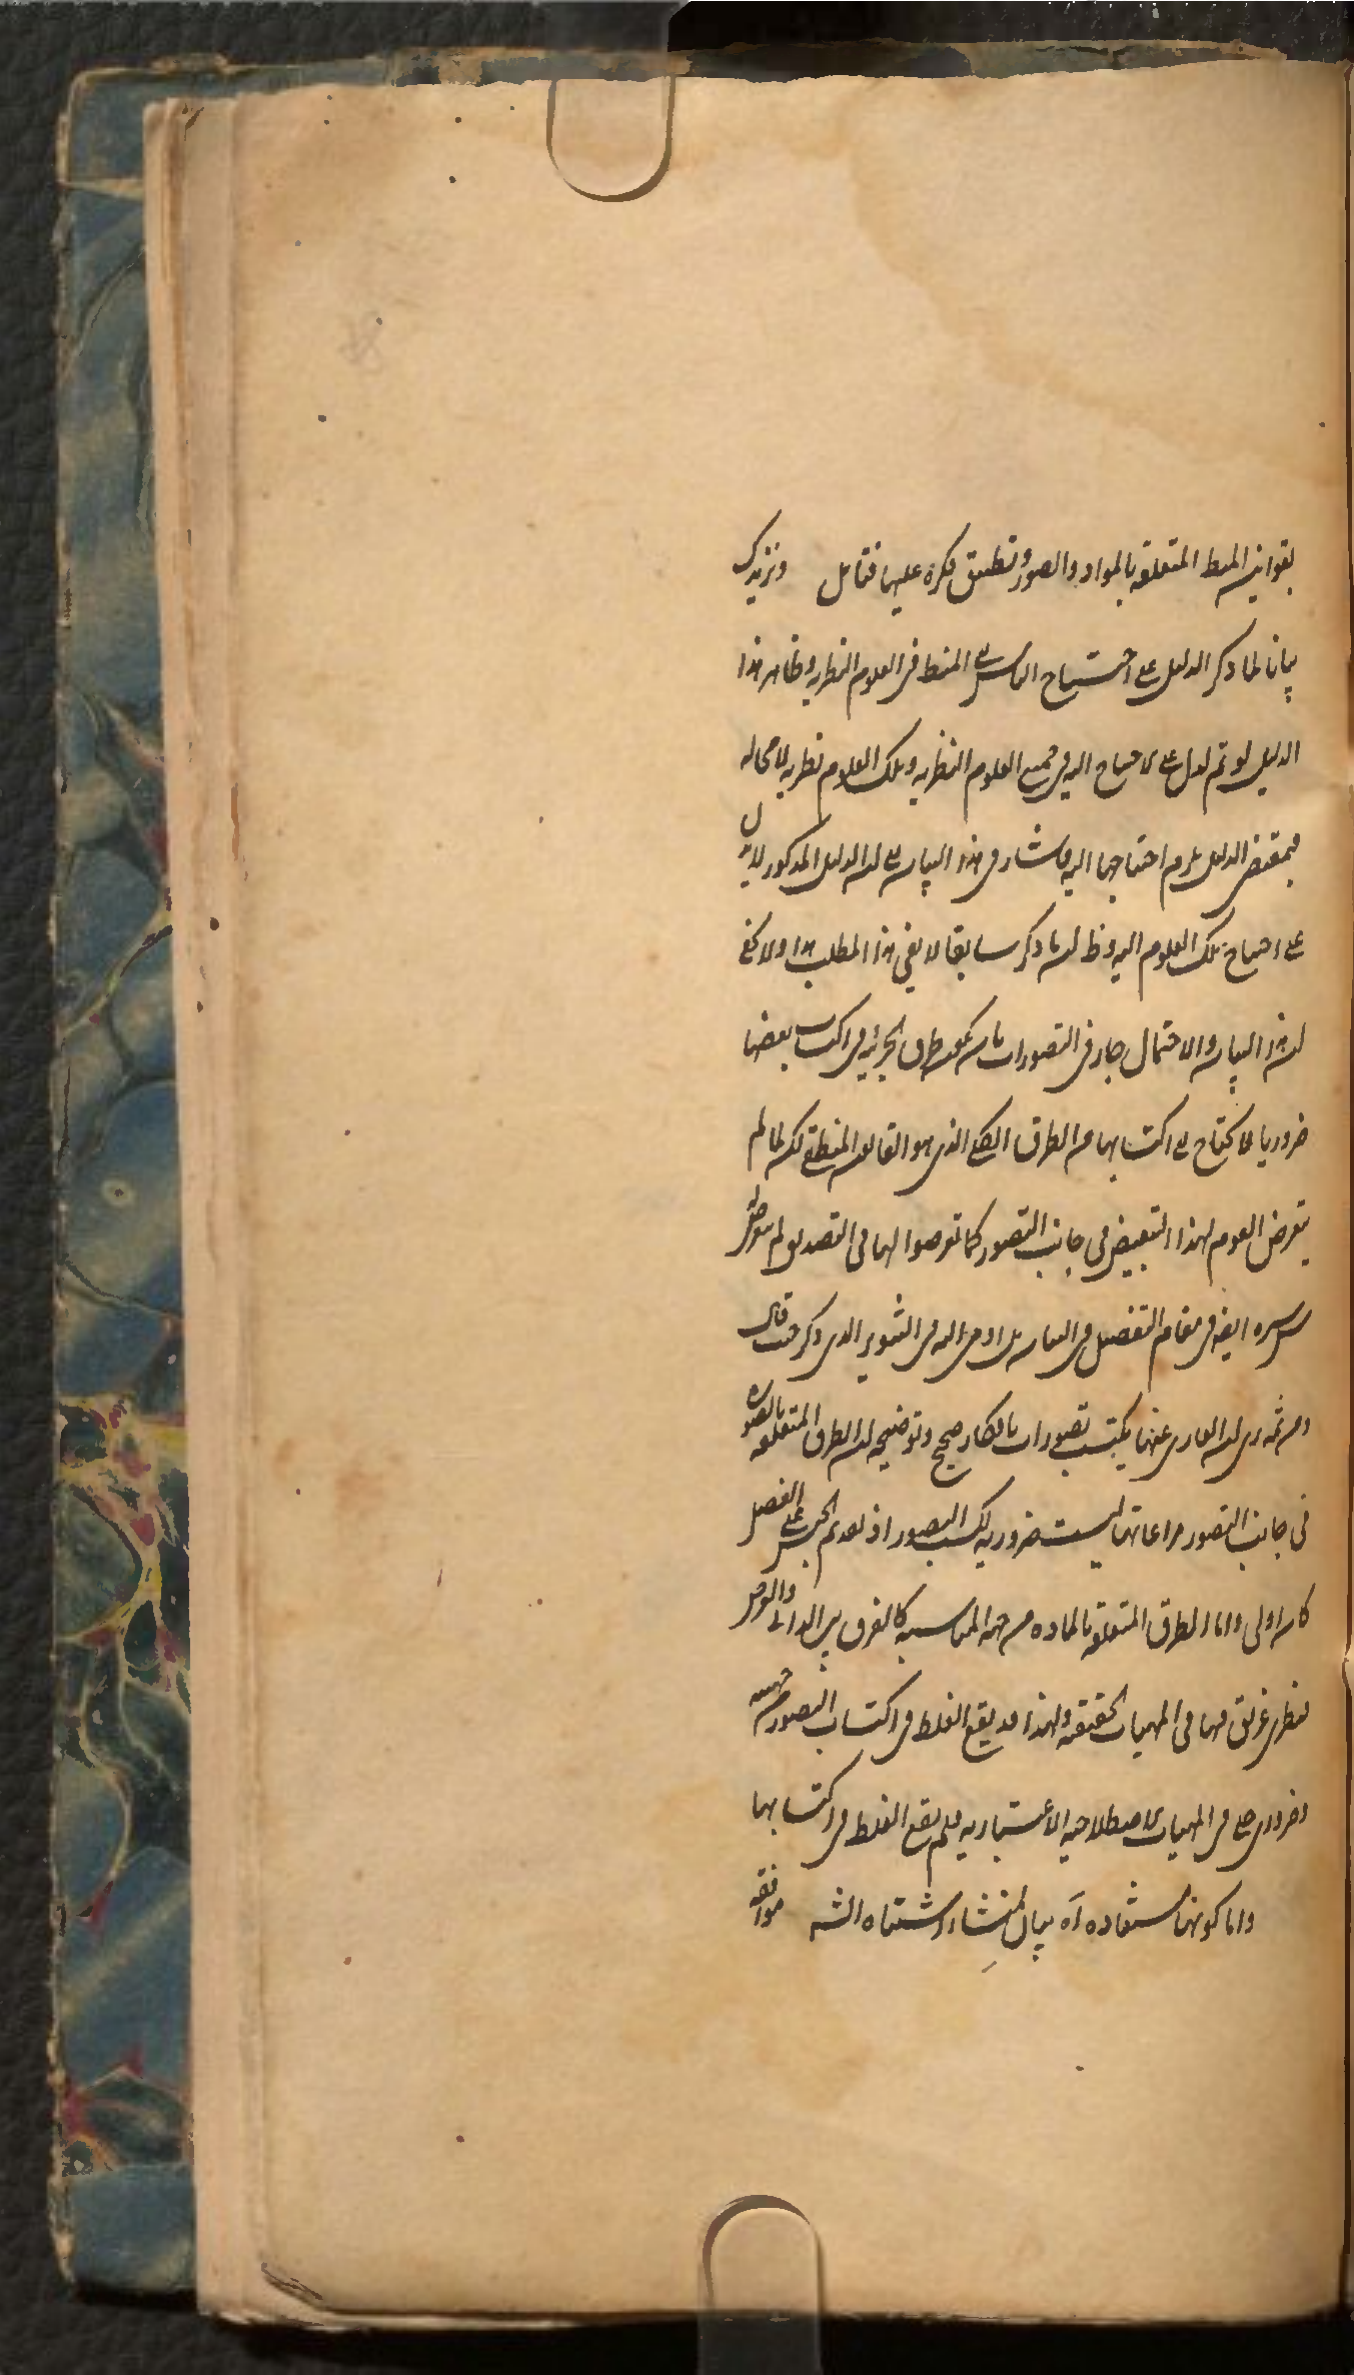 بقوانين المنط المتعلقه بالمواد والصور وتطبيق فكره عليها فتامل ونزيدك
بيانا لما ذكر الدليل على احتياج الناس الى المنط فى العلوم النظريه وظاهر هذا
الدليل لو تم لدل على الاحتياج اليه فى جميع العلوم النظريه وتلك العلوم نظريه لا محاله
فبمقتضى الدليل يلزم احتياجها اليه فاشار فى هذا البيان الى ان الدليل المذكور لا يدل
على احتياج تلك العلوم اليه وظ ان ما ذكر سابقا لا يفى هذا المطلب هذا ولا يخفى
ان هذا البيان والاحتمال جار فى التصورات بان يكون طرق الجزئيه فى اكتساب بعضها
ضروريا لا يحتاج الى اكتسابها من الطرق الكلى الذى هو القانون المنطقى لكن لما لم
يتعرض القوم لهذا التبعيض فى جانب التصور كما تعرضوا لها فى التصديق لم يتعرض له
سره ايضا فى مقام التفصيل فى البيان بل اومى اليه فى التنوير الذى ذكر حيث قال
ومن ثمه ترى ان العارى عنها يكتسب تصورات بافكار صحيح وتوضيحه ان الطرق المتعلقه بالصوره
فى جانب التصور مراعاتها ليست ضروريه لكسب التصور اذ تقديم الجنس على الفصل
كان اولى واما الطرق المتعلقه بالماده من جهه المناسبه كالفرق بين الذاتى والعرض
نظرى فيها فى المهيات الحقيقه ولهذا قد يقع الغلط فى اكتساب التصور من جهته
وضرورى فى المهيات الاصطلاحيه الاعتباريه فلم يقع الغلط فى اكتسابها
واما كونها مستفاده آه بيان لمنشاء اشتباه الشه موافقه